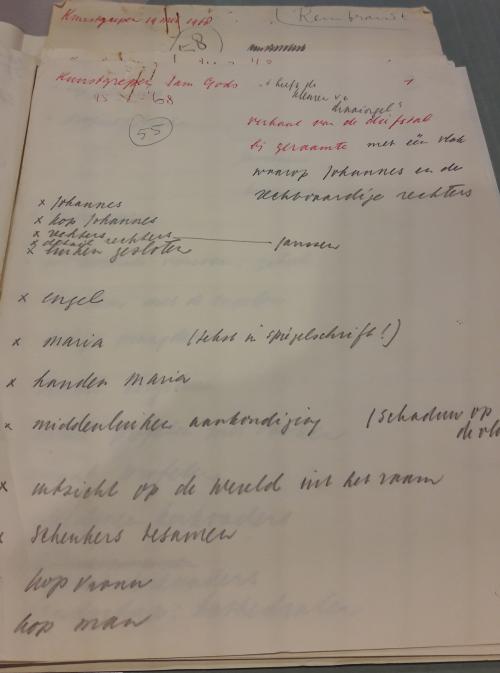 Kunstgrepen 14 mei 1968
Rembrandt
58
Kunstgrepen Lam Gods
15 - '68
55
"heeft de
kleuren v.e
draaiorgel"
verhaal van de diefstal
bij geraamte met één vlak
waarop Johannes en de
rechtvaardige rechters
x Johannes
x kop Johannes
x rechters
x detail rechters Janssen
x luiken gesloten
x engel
x maria (tekst in spiegelschrift!)
x handen maria
x middenluiken aankondiging (schaduw op
de vlo
x uitzicht op de wereld uit het raam
x schenkers tesamen
kop vrouw
kop man